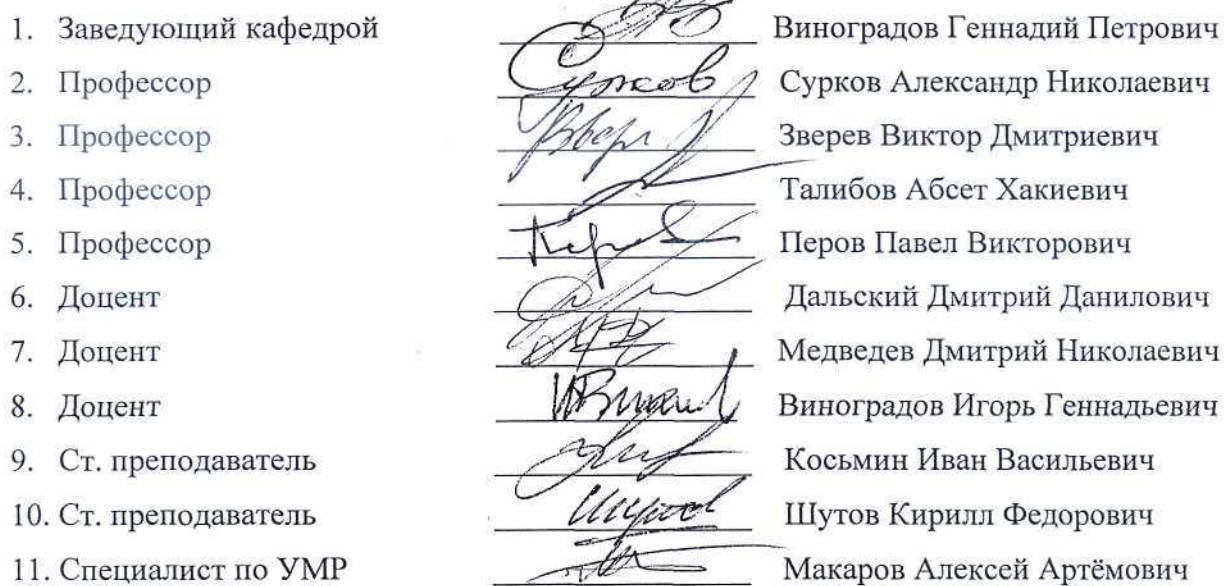 1. Заведующий кафедрой Виноградов Геннадий Петрович
2. Профессор Сурков Александр Николаевич
3. Профессор Зверев Виктор Дмитриевич
4. Профессор Талибов Абсет Хакиевич
5. Профессор Перов Павел Викторович
6. Доцент Дальский Дмитрий Данилович
7. Доцент Медведев Дмитрий Николаевич
8. Доцент Виноградов Игорь Геннадьевич
9. Ст. преподаватель Косьмин Иван Васильевич
10. Ст. преподаватель Шутов Кирилл Федорович
11. Специалист по УМР Макаров Алексей Артёмович